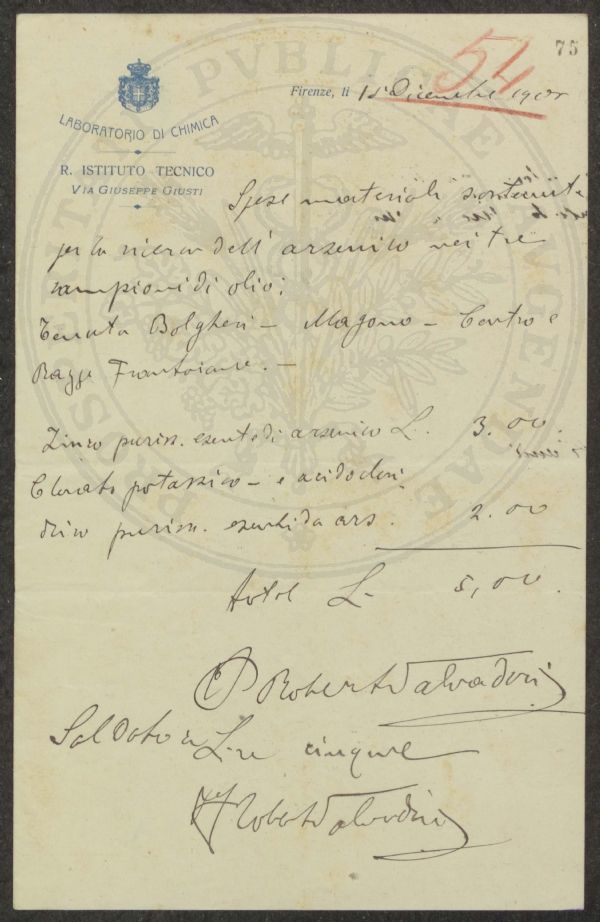 75
54
LABORATORIO DI CHIMICA
R. ISTITUTO TECNICO
VIA GIUSEPPE GIUSTI
Firenze, li Dicembre
Spese materiali sostenute
per la ricerca dell' arsenico nei tre
campioni di olio:
Tenuta Bolgheri - Magona - Centro e
Razze Frantoiane. -
Zinco puriss. esente di arsenico L. 3.00
Clorato potassico - e acido clori
drico puriss. esente da ars. 2.00
Total L. 5,00.
Roberto Salvadori
Saldato in Lire cinque
Roberto Salvadori